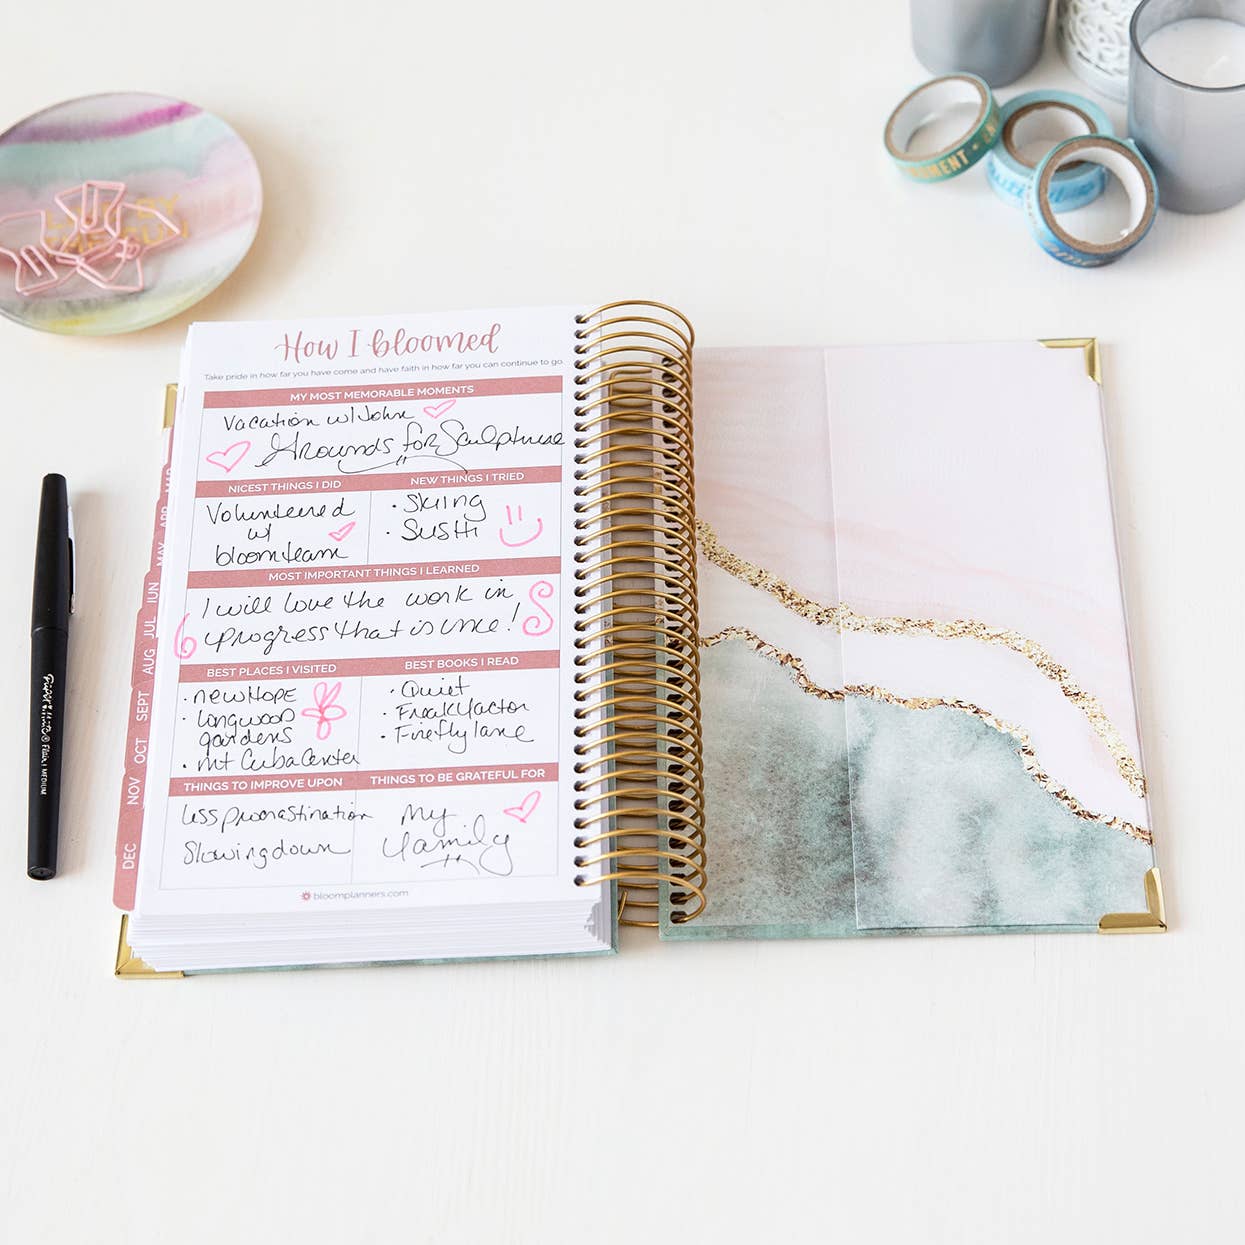 LIVE BY
THE SUN
How I bloomed
Take pride in how far you have come and have faith in how far you can continue to go.
MY MOST MEMORABLE MOMENTS
Vacation w/ John
Grounds for Sculpture
NICEST THINGS I DID
NEW THINGS I TRIED
Volunteered
w/
bloom team
• Skiing
• Sushi
MOST IMPORTANT THINGS I LEARNED
I will love the work in
progress that is once!
BEST PLACES I VISITED
BEST BOOKS I READ
• new HOPE
• Longwood
gardens
• Mt Cuba Center
• Quiet
• Freak factor
• Firefly lane
THINGS TO IMPROVE UPON
THINGS TO BE GRATEFUL FOR
less procrastination
Slowing down
My
family
bloomplanners.com
MAR
APR
MAY
JUN
JUL
AUG
SEPT
OCT
NOV
DEC
Flair MEDIUM